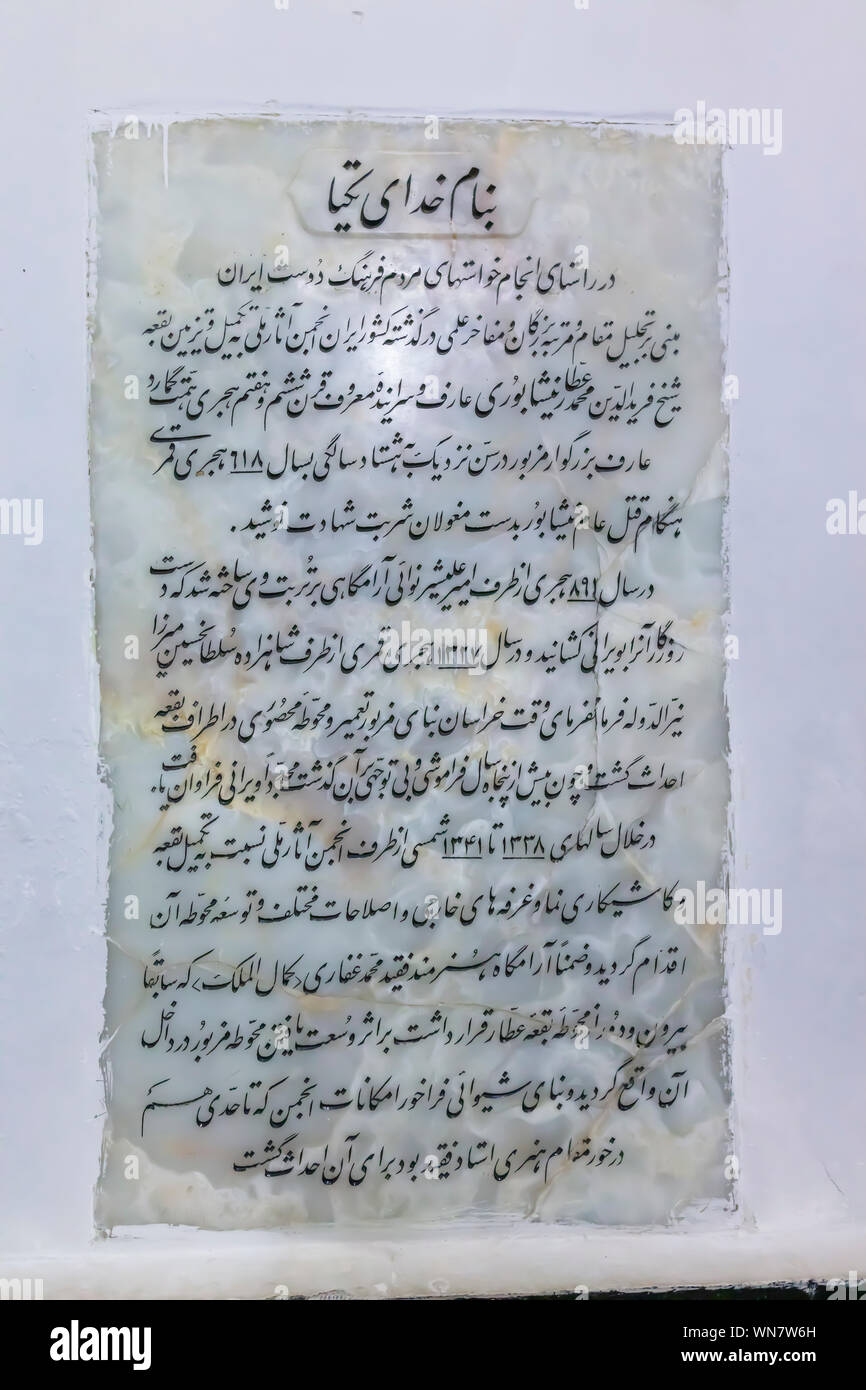 بنام خدای یکتا
در راستای انجام خواستهای مردم فرهنگ دوست ایران
مبنی بر تجلیل مقام و مرتبه بزرگان و مفاخر علمی در گذشته کشور ایران انجمن آثار ملی به تکمیل و تزیین بقعه
شیخ فریدالدین محمد عطار نیشابوری عارف و سراینده معروف قرن ششم و هفتم هجری همت گمارد
عارف بزرگوار مزبور در سن نزدیک به هشتاد سالگی بسال ٦١٨ هجری قمری
هنگام قتل عام نیشابور بدست مغولان شربت شهادت نوشید .
در سال ٨٩١ هجری از طرف امیر علیشیر نوائی آرامگاهی بر تربت وی ساخته شد که دست
روزگار آنرا بویرانی کشانید و در سال ١٣٢٧ هجری قمری از طرف شاهزاده سلطانحسین میرزا
نیرالدوله فرمانفرمای وقت خراسان بنای مزبور تعمیر و محوطه محصوری در اطراف بقعه
احداث گشت و چون بیش از پنجاه سال فراموشی و بی توجهی بر آن گذشت مجدداً ویرانی فراوان یافت.
در خلال سالهای ١٣٣٨ تا ١٣٤١ شمسی از طرف انجمن آثار ملی نسبت به تکمیل بقعه
و کاشیکاری نما و غرفه های خارجی و اصلاحات مختلف و توسعه محوطه آن
اقدام گردید و ضمناً آرامگاه هنرمند فقید محمد غفاری <کمال الملک> که سابقاً
بیرون و دور از محوطه بقعه عطار قرار داشت بر اثر وسعت یافتن محوطه مزبور در داخل
آن واقع گردید و بنای شیوائی فراخور امکانات انجمن که تا حدی هم
در خور مقام هنری استاد فقید بود برای آن احداث گشت
alamy
alamy
Image ID: WN7W6H
www.alamy.com